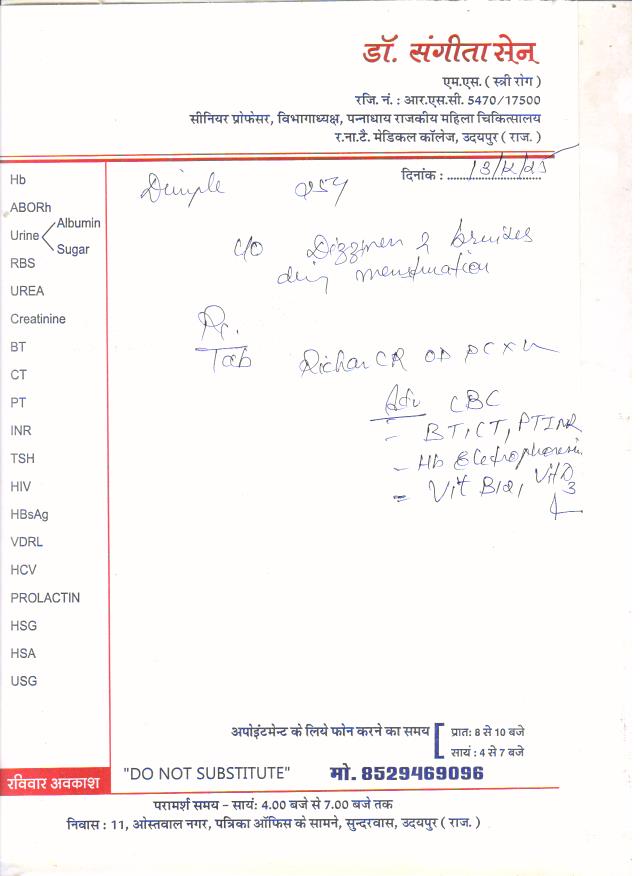 डॉ. संगीता सेन
एम.एस. ( स्त्री रोग )
रजि. नं. : आर.एस.सी. 5470/17500
सीनियर प्रोफेसर, विभागाध्यक्ष, पन्नाधाय राजकीय महिला चिकित्सालय
र.ना.टै. मेडिकल कॉलेज, उदयपुर ( राज. )
दिनांक :
Dimple
Hb
ABORh
Urine Albumin
Sugar
RBS
UREA
Creatinine
BT
CT
PT
INR
TSH
HIV
HBsAg
VDRL
HCV
PROLACTIN
HSG
HSA
USG
c/o Dizziness & bruises
menstruation
Rx.
Tab Richar CR OD PC x
Adv CBC
- BT, CT, PTINR
- Hb Eletrophoresis
= Vit B12, Vit D3
अपोइंटमेन्ट के लिये फोन करने का समय
प्रातः 8 से 10 बजे
सायं : 4 से 7 बजे
रविवार अवकाश
"DO NOT SUBSTITUTE" मो. 8529469096
परामर्श समय – सायं: 4.00 बजे से 7.00 बजे तक
निवास : 11, ओस्तवाल नगर, पत्रिका ऑफिस के सामने, सुन्दरवास, उदयपुर ( राज. )